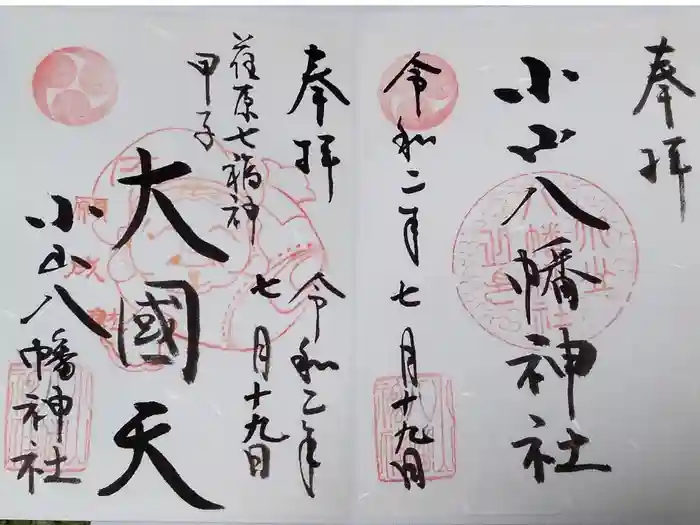 奉拝
小山八幡神社
令和二年七月十九日
奉拝
令和二年
七月十九日
荏原七福神
甲子
大國天
小山八幡神社